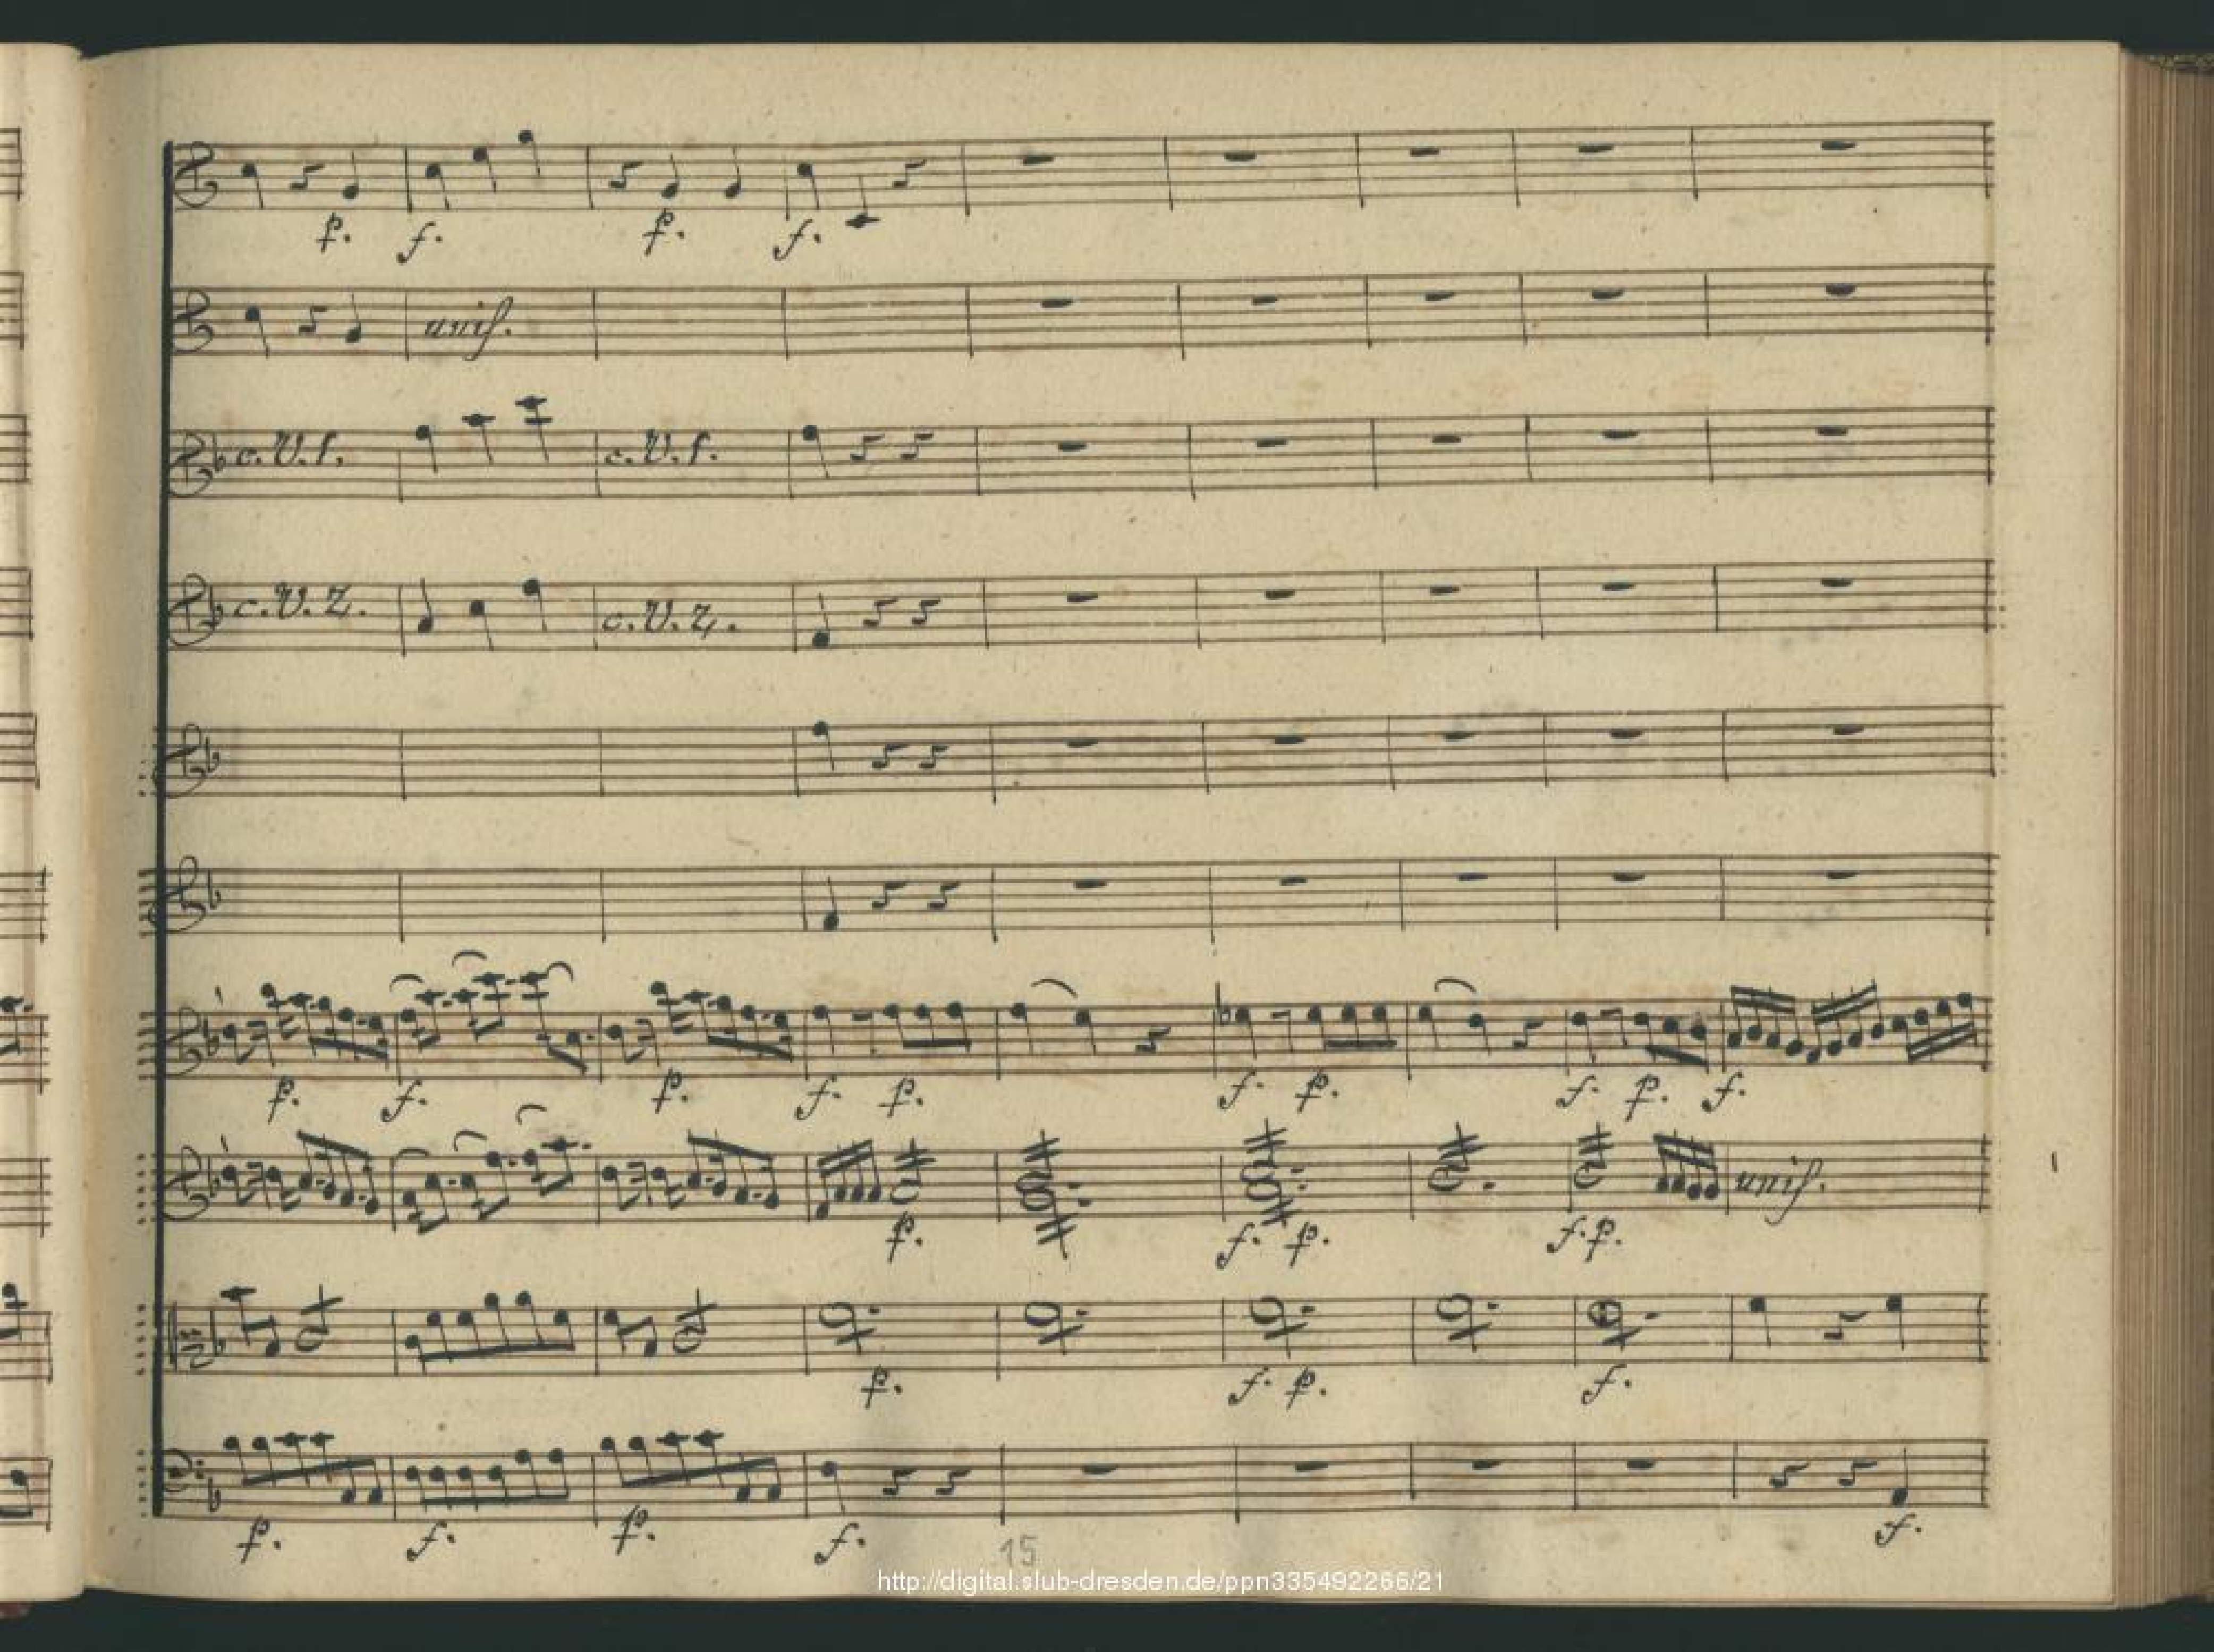 p. f. p. f.
unis.
c. V. 1. c. V. 1.
c. V. 2. c. V. 2.
p. f. p. f. p. f. p. f. p. f.
unis.
p. f. p. f. p.
p. f. p. f.
p. f. p. f. f.
15
http://digital.slub-dresden.de/ppn335492266/21